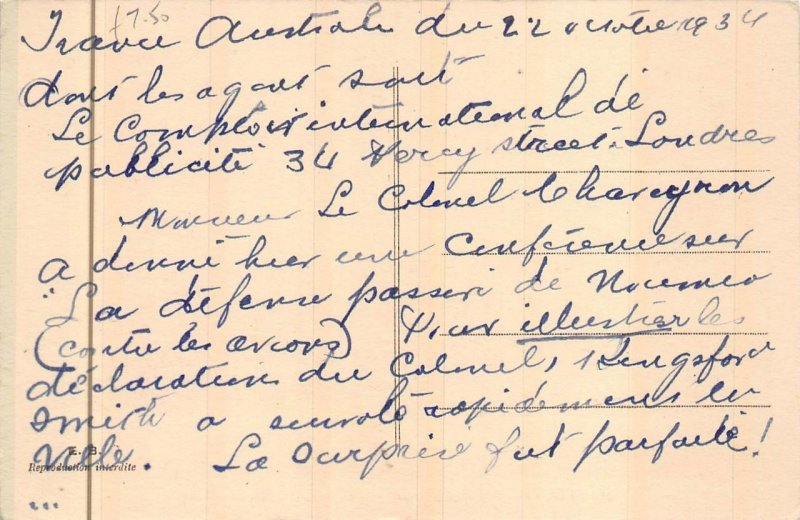 £7.50
France Australie du 22 octobre 1934
dont les agent sont
Le Comptoir international de
publicité 34 Percy street. Londres
Monsieur Le Colonel Chareyron
a donné hier une conférence sur
"La défense passive de Noumea
(contre les avions) Pour illustrer les
déclarations du Colonel, Kingsford
Smith a survolé rapidement la
Ville. La surprise fut parfaite!
E. B.
Reproduction interdite
...